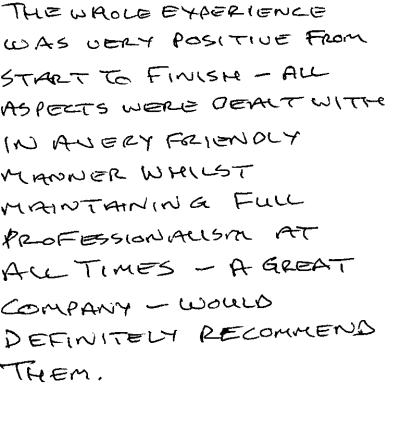 THE WHOLE EXPERIENCE
WAS VERY POSITIVE FROM
START TO FINISH – ALL
ASPECTS WERE DEALT WITH
IN A VERY FRIENDLY
MANNER WHILST
MAINTAINING FULL
PROFESSIONALISM AT
ALL TIMES – A GREAT
COMPANY – WOULD
DEFINITELY RECOMMEND
THEM.